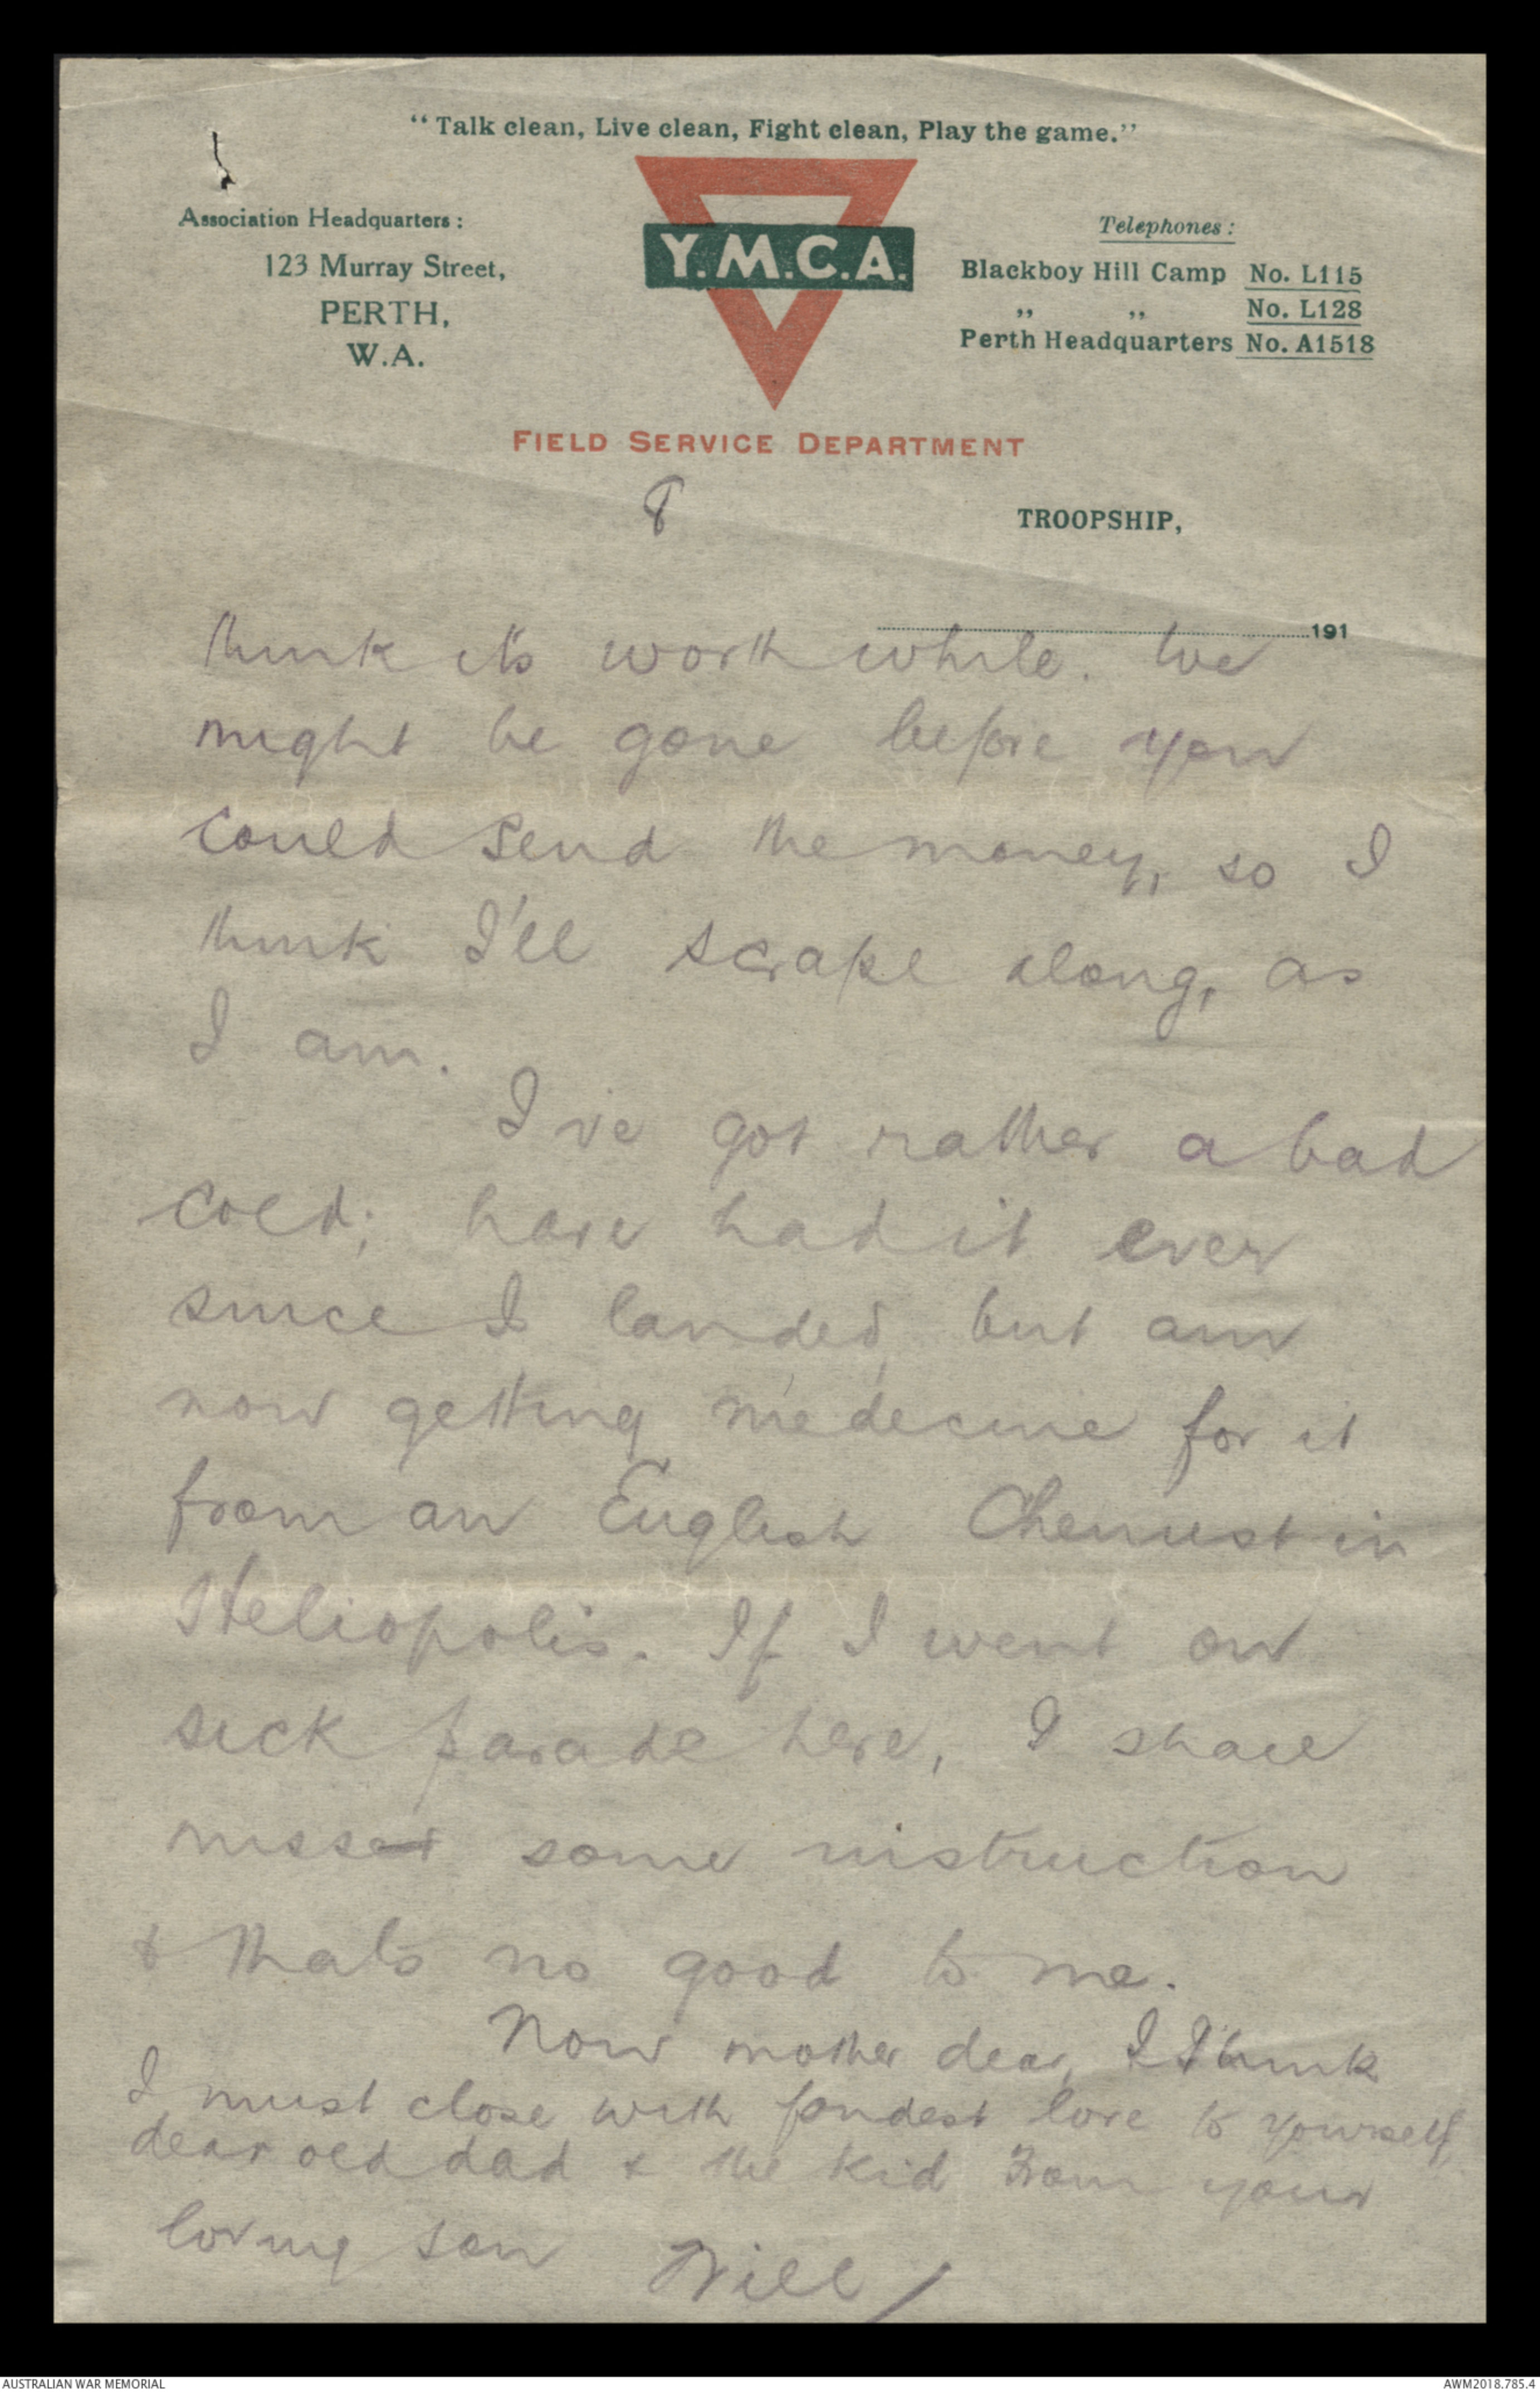 “Talk clean, Live clean, Fight clean, Play the game.”
Association Headquarters:
123 Murray Street,
PERTH,
W.A.
Y.M.C.A.
Telephones:
Blackboy Hill Camp No. L115
„ „ No. L128
Perth Headquarters No. A1518
FIELD SERVICE DEPARTMENT
8
TROOPSHIP,
191
think it's worth while. We
might be gone before you
could send the money, so I
think I'll scrape along, as
I am.
I've got rather a bad
cold; have had it ever
since I landed, but am
now getting medecine for it
from an English Chemist in
Heliopolis. If I went on
sick parade here, I shall
missed some instruction
& thats no good to me.
Now mother dear, I think
I must close with fondest love to yourself,
dear old dad & the kid From your
loving son Will
AUSTRALIAN WAR MEMORIAL
AWM2018.785.4